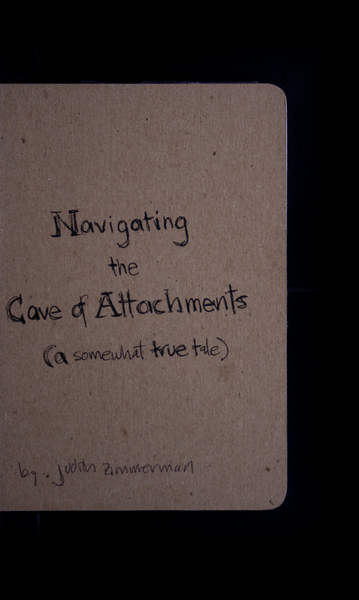 Navigating
the
Cave of Attachments
(a somewhat true tale)
by. judith zimmerman